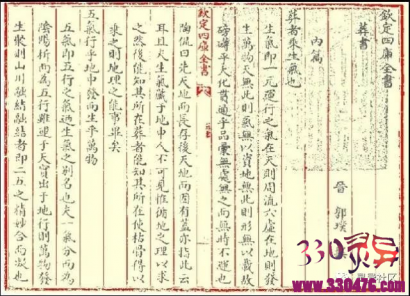 欽定四庫全書
葬書
晉 郭璞
內篇
葬者乘生氣也
生氣即一元運行之氣在天則周流六虛在地則發
生萬物天無此則氣無以資地無此則形無以載故
磅礴乎大化貫通乎品彙無處無之而無時不運也
欽定四庫全書
陶侃曰先天地而長存後天地而固有蓋亦指此云
耳且夫生氣藏于地中人不可見惟循地之理以求
之然後能知其所在葬者能知其所在使枯骨得以
乘之則地理之能事畢矣
五氣行乎地中發而生乎萬物
五氣即五行之氣迺生氣之別名也夫一氣分而為
陰陽析而為五行雖運于天實出于地行則萬物發
生聚則山川融結融結者即二五之精妙合而凝也
330灵异
www.330476.com